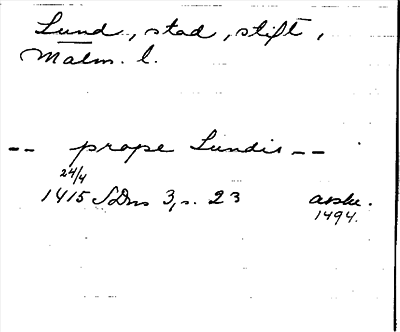 Lund, stad, stift,
Malm. l.
-- prope Lundis --
24/4
1415 SDns 3, s. 23 avskr.
1494.